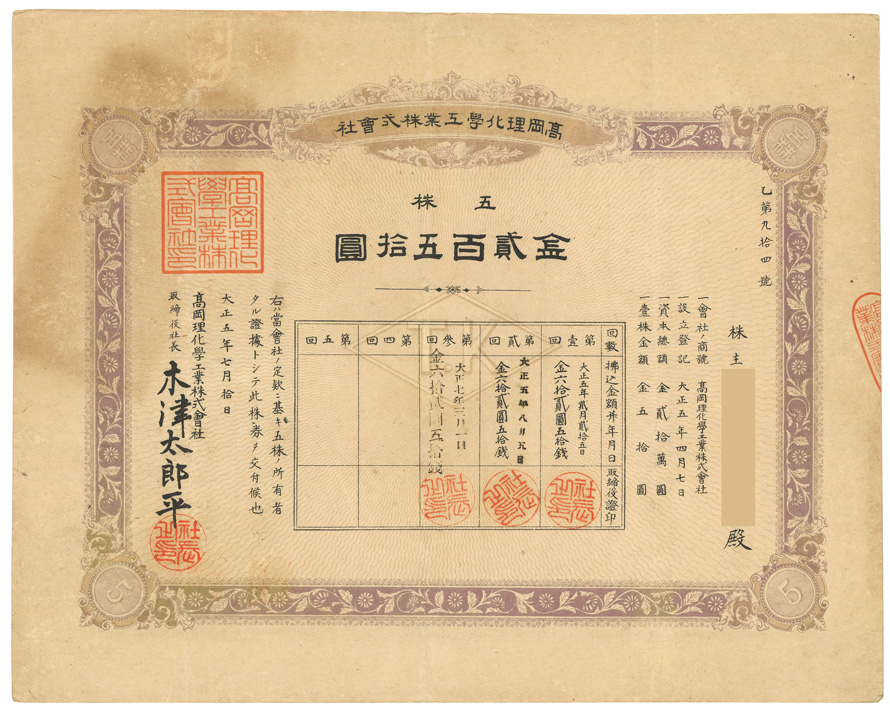 髙岡理化學工業株式會社
五株
金貳百五拾圓
乙第九拾四號
株主
殿
一會社ノ商號 髙岡理化學工業株式會社
一設立登記 大正五年四月七日
一資本總額 金貳拾萬圓
一壹株金額 金五拾圓
回數 拂込金額并年月日 取締役證印
第壹回 大正五年貳月貳拾五日 金六拾貳圓五拾錢
第貳回 大正五年八月五日 金六拾貳圓五拾錢
第參回 大正七年三月一日 金六拾貳圓五拾錢
第四回
第五回
右ハ當會社ノ定欵ニ基キ五株ノ所有者
タル證據トシテ此株券ヲ交付候也
大正五年七月拾日
髙岡理化學工業株式會社
取締役社長 木津太郎平
髙岡理化學工業株式會社印
社長之印
社長之印
社長之印
社長之印
5
5